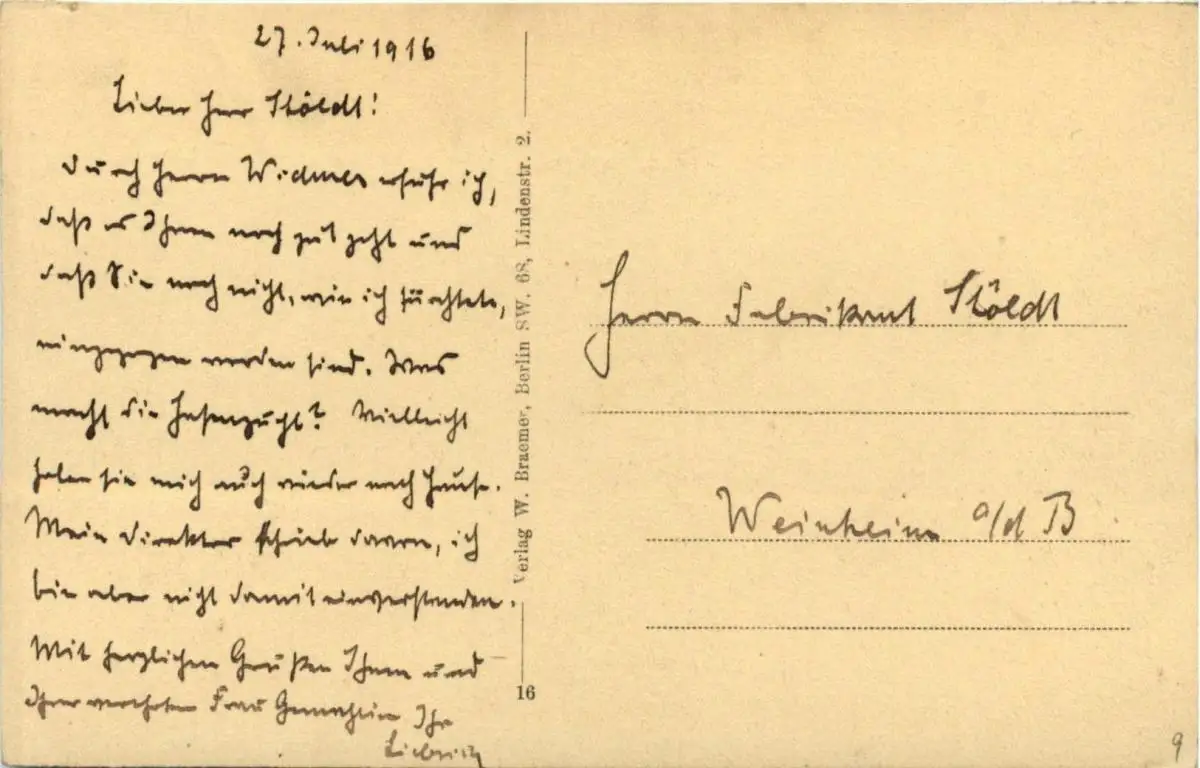 27. Juli 1916
Lieber Herr Stöldt!
Durch Herrn Widmer erfuhr ich,
daß es Ihnen noch gut geht und
daß Sie noch nicht, wie ich fürchtete,
eingezogen worden sind. Was
macht die Hasenzucht? Vielleicht
holen sie mich auch wieder nach Hause.
Mein Direktor schrieb darum, ich
bin aber nicht damit einverstanden.
Mit herzlichen Grüßen Ihnen und
Ihrer verehrten Frau Gemahlin Ihr
Verlag W. Braemer, Berlin SW. 68, Lindenstr. 2.
16
Herrn Fabrikant Stöldt
Weinheim a/d B
9